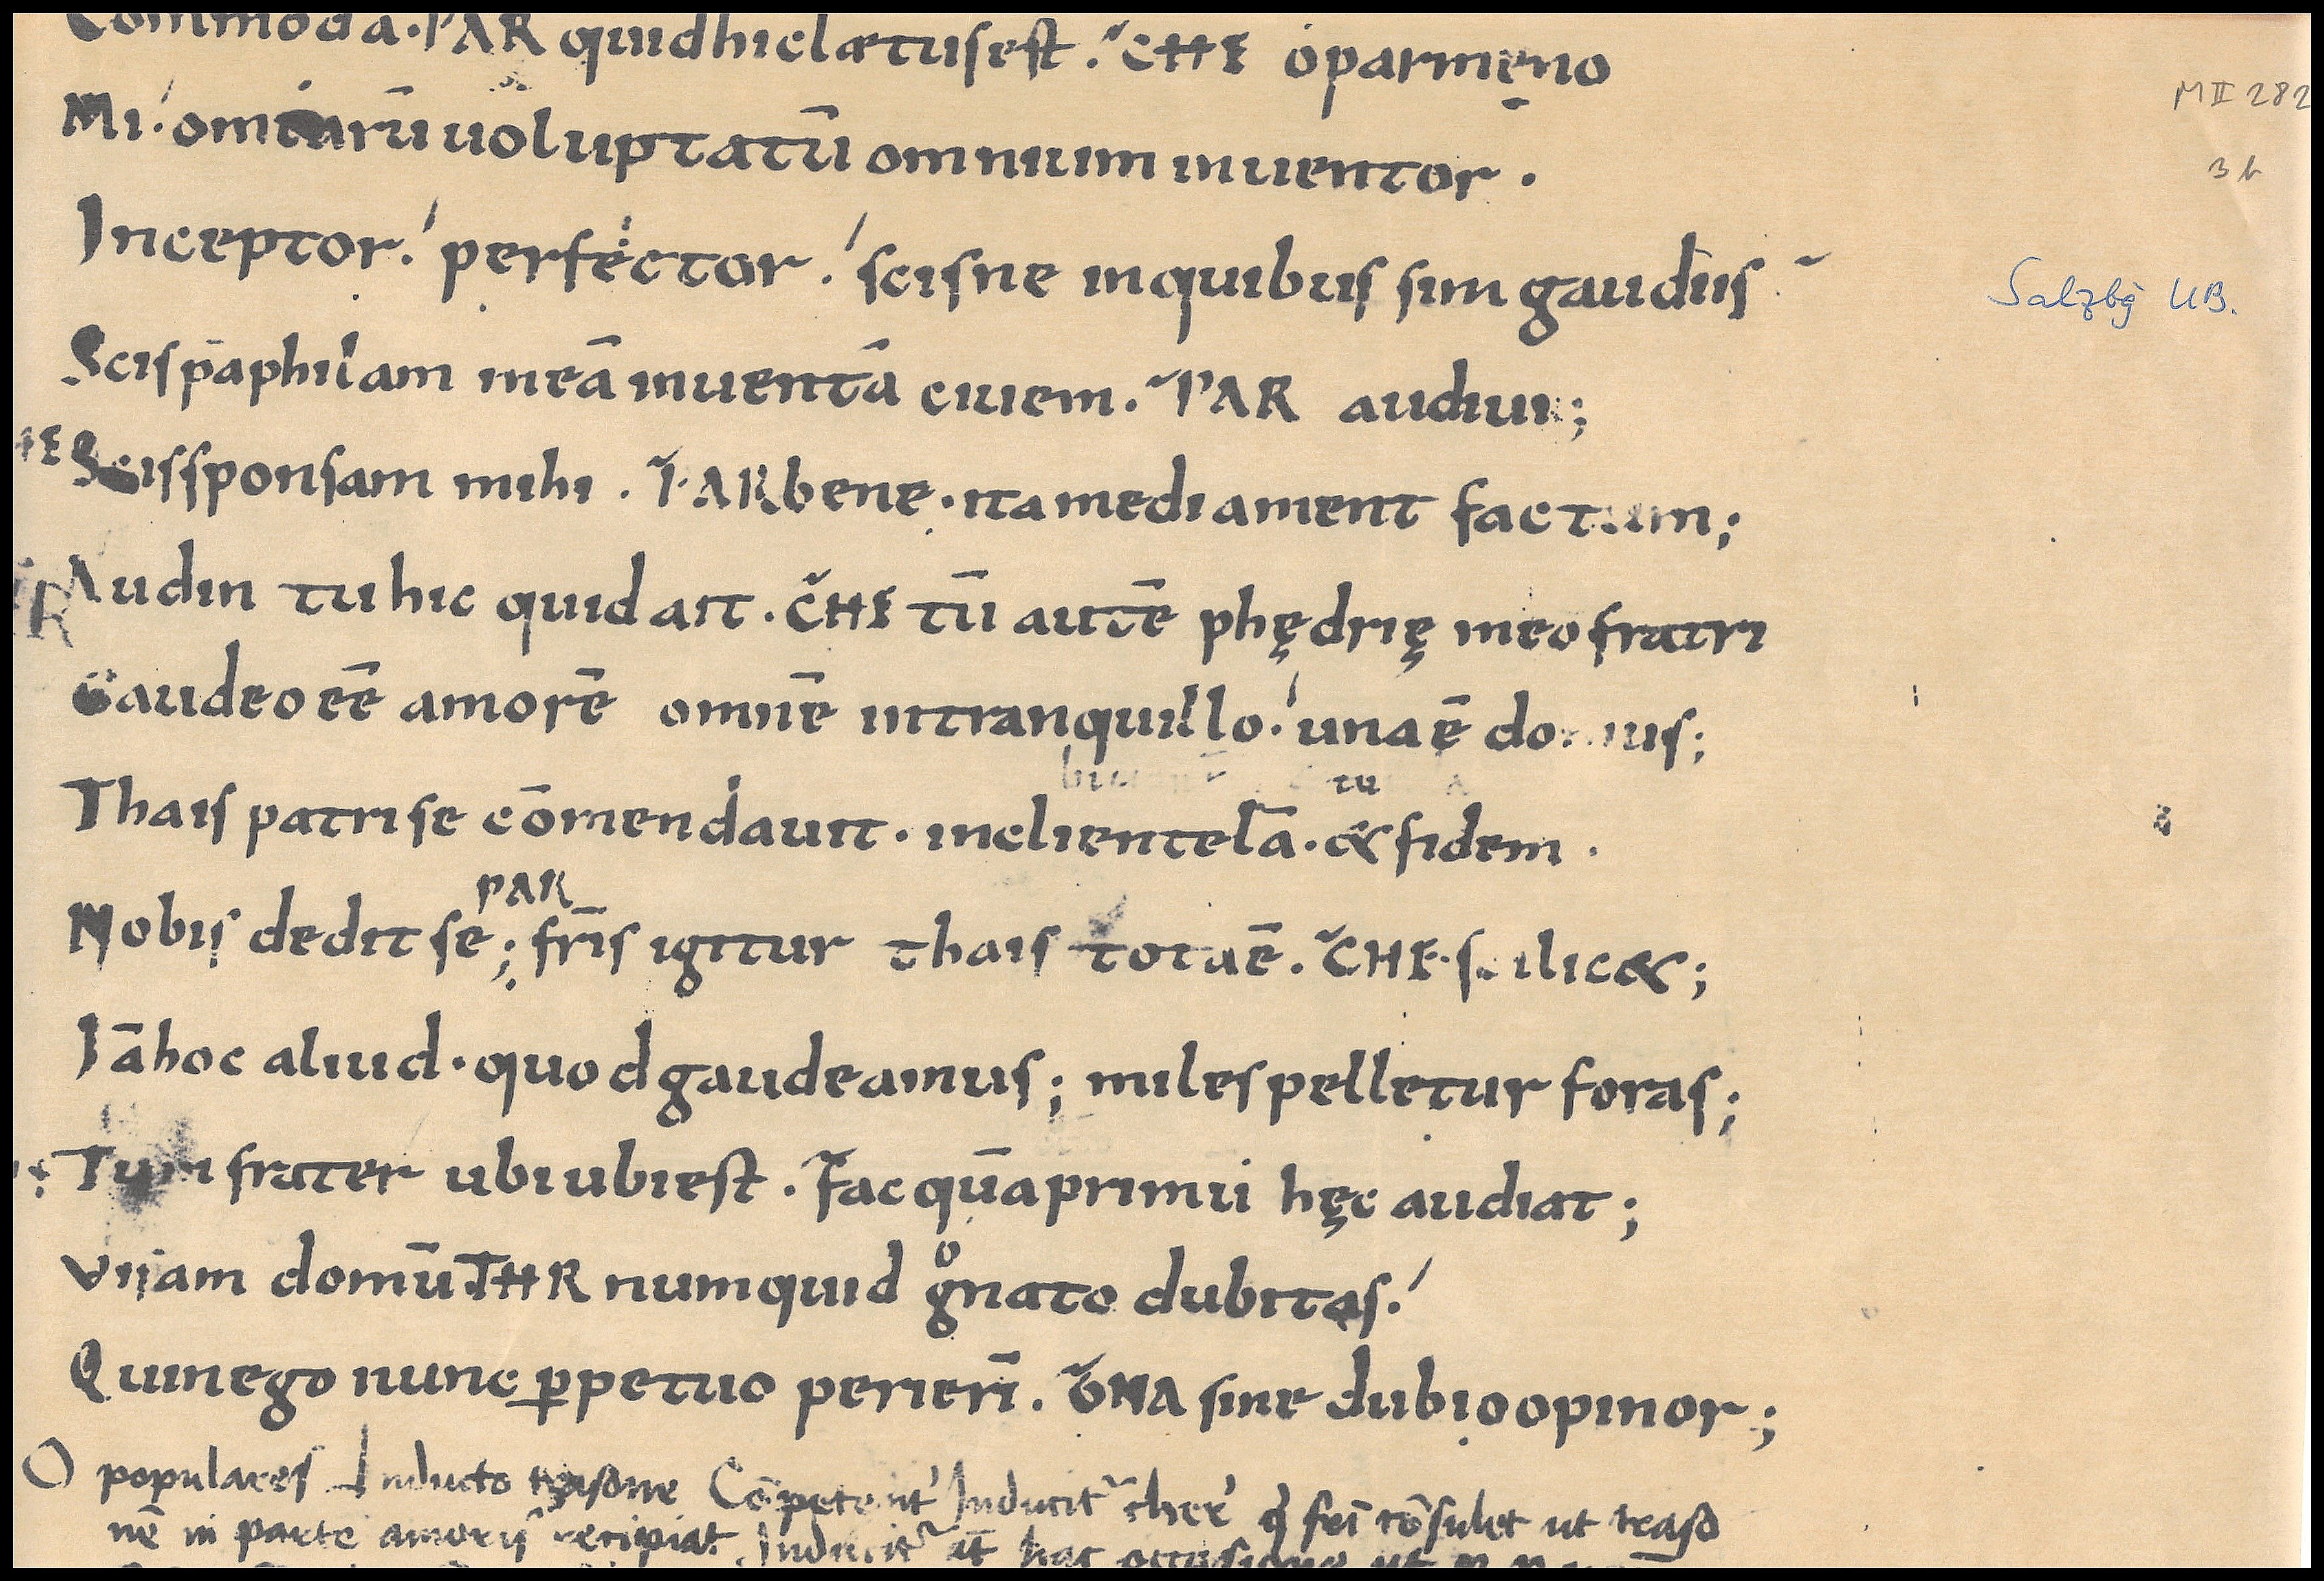 Commoda·PAR quidhiclætusest. CHE óparmęno
MII 282
Mi. omearū uoluptatū omnium inuentor.
3b
Inceptor. perfector. scisne inquibus sim gaudiis
Salzbg UB.
Scispāaphilam meā inuentā ciuem. PAR audiui;
HE Scissponsam mihi. PAR bene·itamediament factum;
Audin tuhic quidait. CHE tū autē phędrię meofratri
Gaudeo eē amorē omnē intranquillo. unaē domus;
tu
Thais patrise cōmendauit· inclientelā· & fidem.
PAR
Nobis deditse; fr̄is igitur thais totaē. CHE· scilic&;
Iāhoc aliud· quodgaudeamus; milespelletur foras;
Tum frater ubiubiest. Facquāprimū hęc audiat;
Viiam domū THR numquid gͦnato dubitas.
Quinego nunc ꝑpetuo perierī. GNA sine dubioopinor;
O populares Inducto trasone Cōpetent Inducit cher qͥ frī cōsulet ut traso
nē in parte amoris recipiat. Inducit aūt hac occasione ut